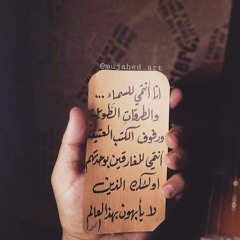 @mujahed.art
أنا أنتمي للسماء ...
والطرقات الطويلة
ورفوف الكتب العتيقة
أنتمي للغارقين بوحدتهم
أولئك الذين
لا يأبهون بهذا العالم